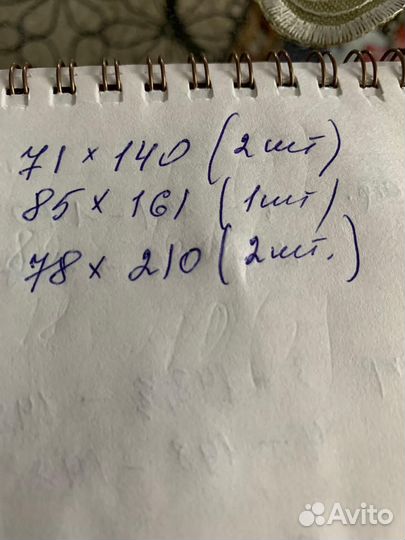 71 × 140 (2 шт)
85 × 161 (1 шт)
78 × 210 (2 шт.)
Avito